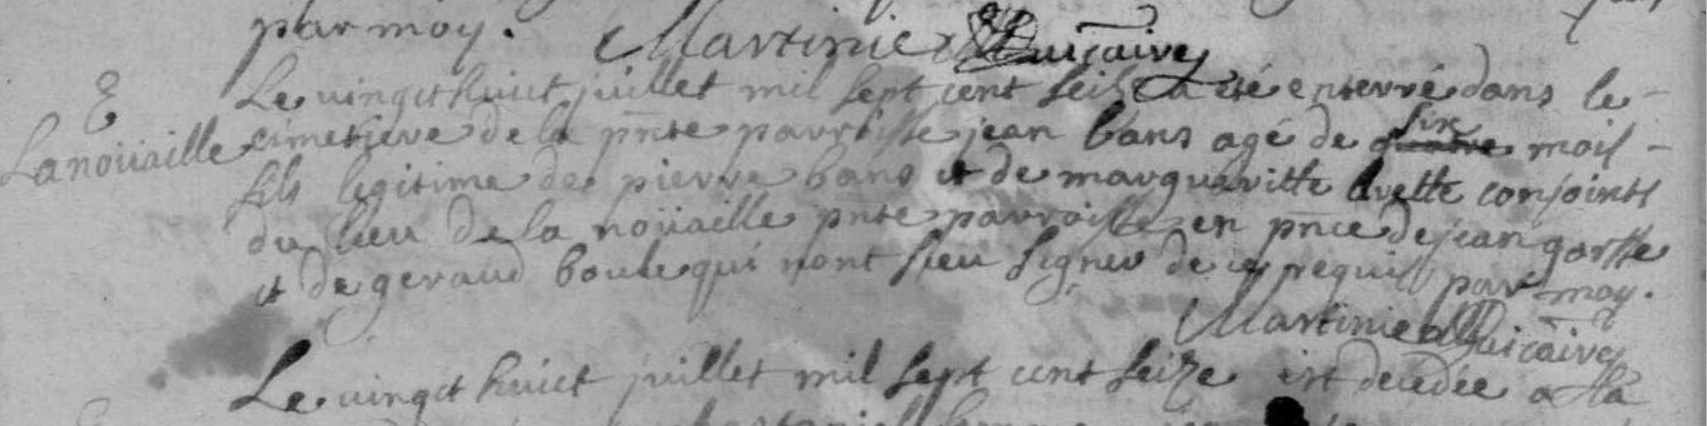 par moy. Martinie Vicaire
E
Lanoüaille
Le vingt huict juillet mil sept cent seise a été enterré dans le
cimetiere de la pnte parroisse jean bans agé de six mois
fils legitime de pierre bans et de margueritte conjoints
du lieu de la noüaille pnte parroisse en pnce de jean
et de geraud qui nont sceu signer de ce requis par moy.
Martinie Vicaire
Le vingt huict juillet mil sept cent seize est decedée a la